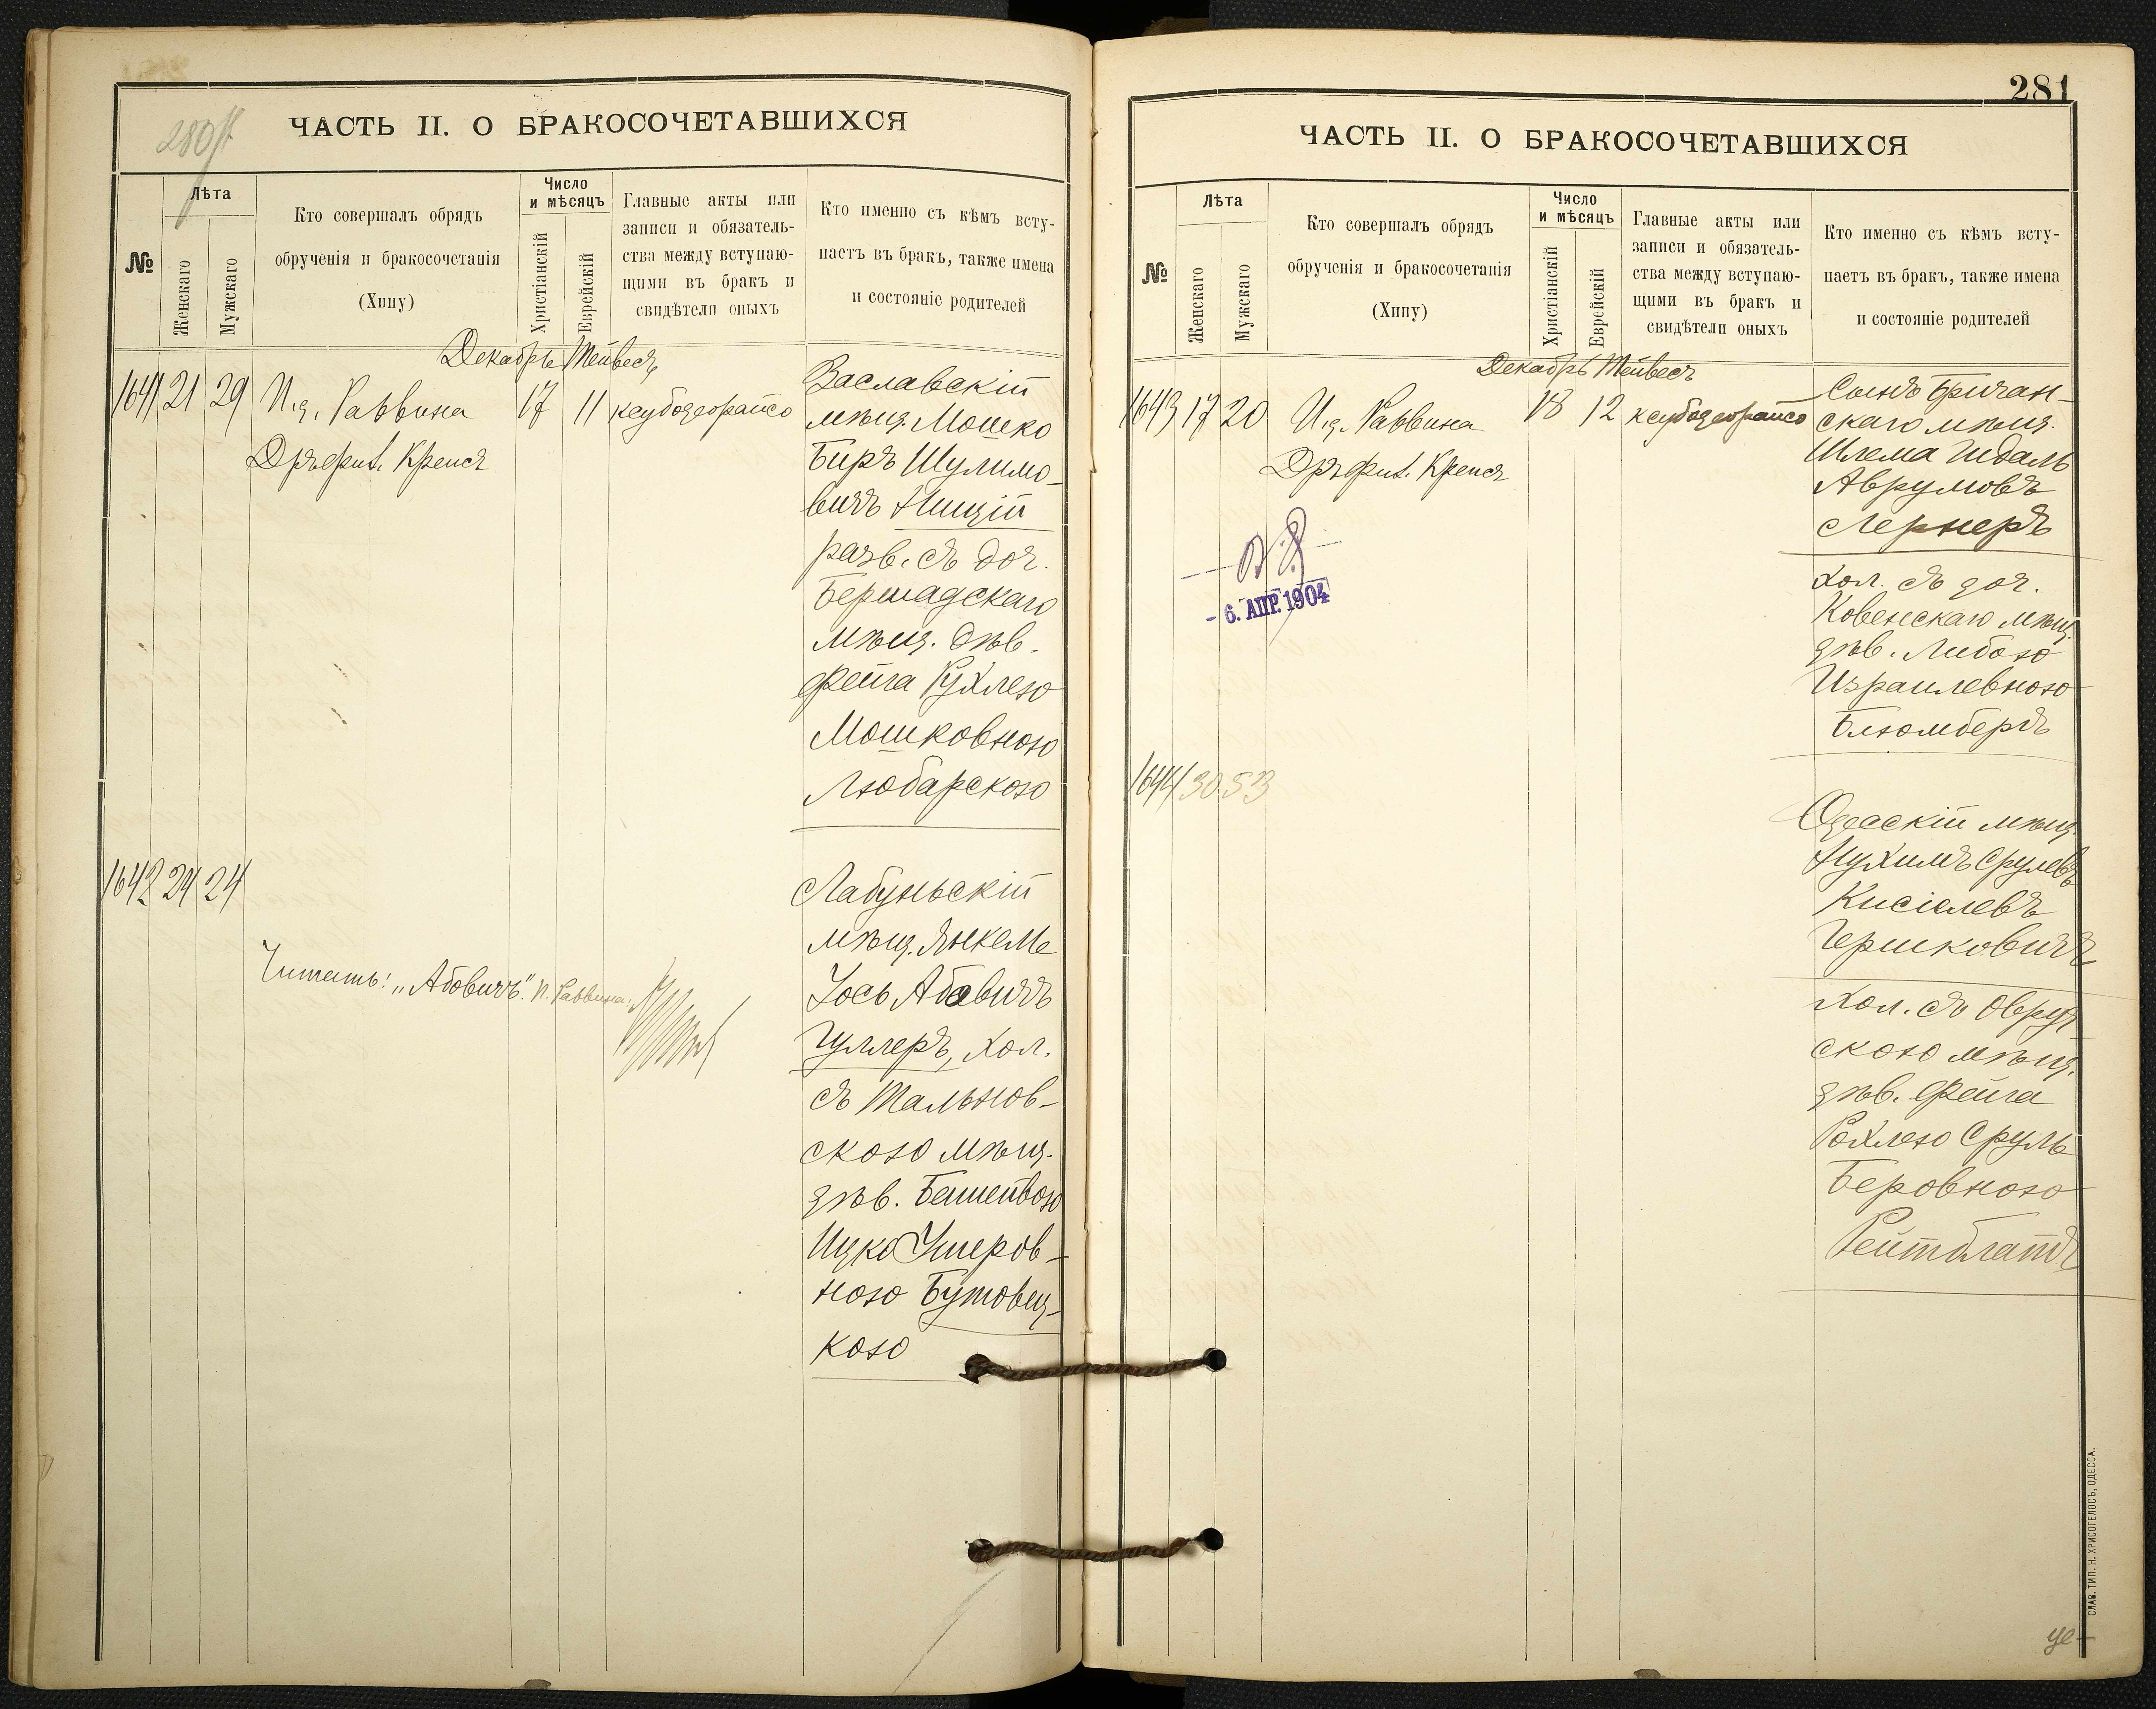 280 г.
ЧАСТЬ II. О БРАКОСОЧЕТАВШИХСЯ
№
Лѣта
Женскаго
Мужскаго
Кто совершалъ обрядъ
обрученія и бракосочетанія
(Хипу)
Число
и мѣсяцъ
Христіанскій
Еврейскій
Главные акты или
записи и обязатель-
ства между вступаю-
щими въ бракъ и
свидѣтели оныхъ
Кто именно съ кѣмъ всту-
паетъ въ бракъ, также имена
и состояніе родителей
Декабрь Тейвесъ
1641 21 29 И.д. Раввина 17 11
Дръ фил. Крепсъ
Заславскій
мѣщ. Мошко
Биръ Шулимо-
вичъ Ницій
разв. съ доч.
Бершадскаго
мѣщ. дѣв.
Фейга Рухлею
Мошковною
Любарскою
1642 24 24
Читать: „Абовичъ". И. Раввина:
Лабуньскій
мѣщ. Янкель
Іось Абовичъ
Гуллеръ, хол.
съ Тальнов-
скою мѣщ.
дѣв. Бешейвою
Ицко Ушеров-
ною Бутовец-
кою
281
ЧАСТЬ II. О БРАКОСОЧЕТАВШИХСЯ
№
Лѣта
Женскаго
Мужскаго
Кто совершалъ обрядъ
обрученія и бракосочетанія
(Хипу)
Число
и мѣсяцъ
Христіанскій
Еврейскій
Главные акты или
записи и обязатель-
ства между вступаю-
щими въ бракъ и
свидѣтели оныхъ
Кто именно съ кѣмъ всту-
паетъ въ бракъ, также имена
и состояніе родителей
Декабрь Тейвесъ
1643 17 20 И.д. Раввина 18 12
Дръ фил. Крепсъ
- 6. АПР. 1904
Сынъ Бричан-
скаго мѣщ.
Шлема Гидаль
Аврумовъ
Лернеръ
хол. съ доч.
Ковенскаго мѣщ.
дѣв. Либою
Израилевною
Блюмбергъ
1644 30 53
Одесскій мѣщ.
Нухимъ Срулевъ
Кисіелевъ
Гершковичъ
Хол. съ Овруч
скою мѣщ.
дѣв. Фейга
Рохлею Сруль
Беровною
Рейтблатъ
СЛАВ. ТИП. Н. ХРИСОГЕЛОСЪ, ОДЕССА.